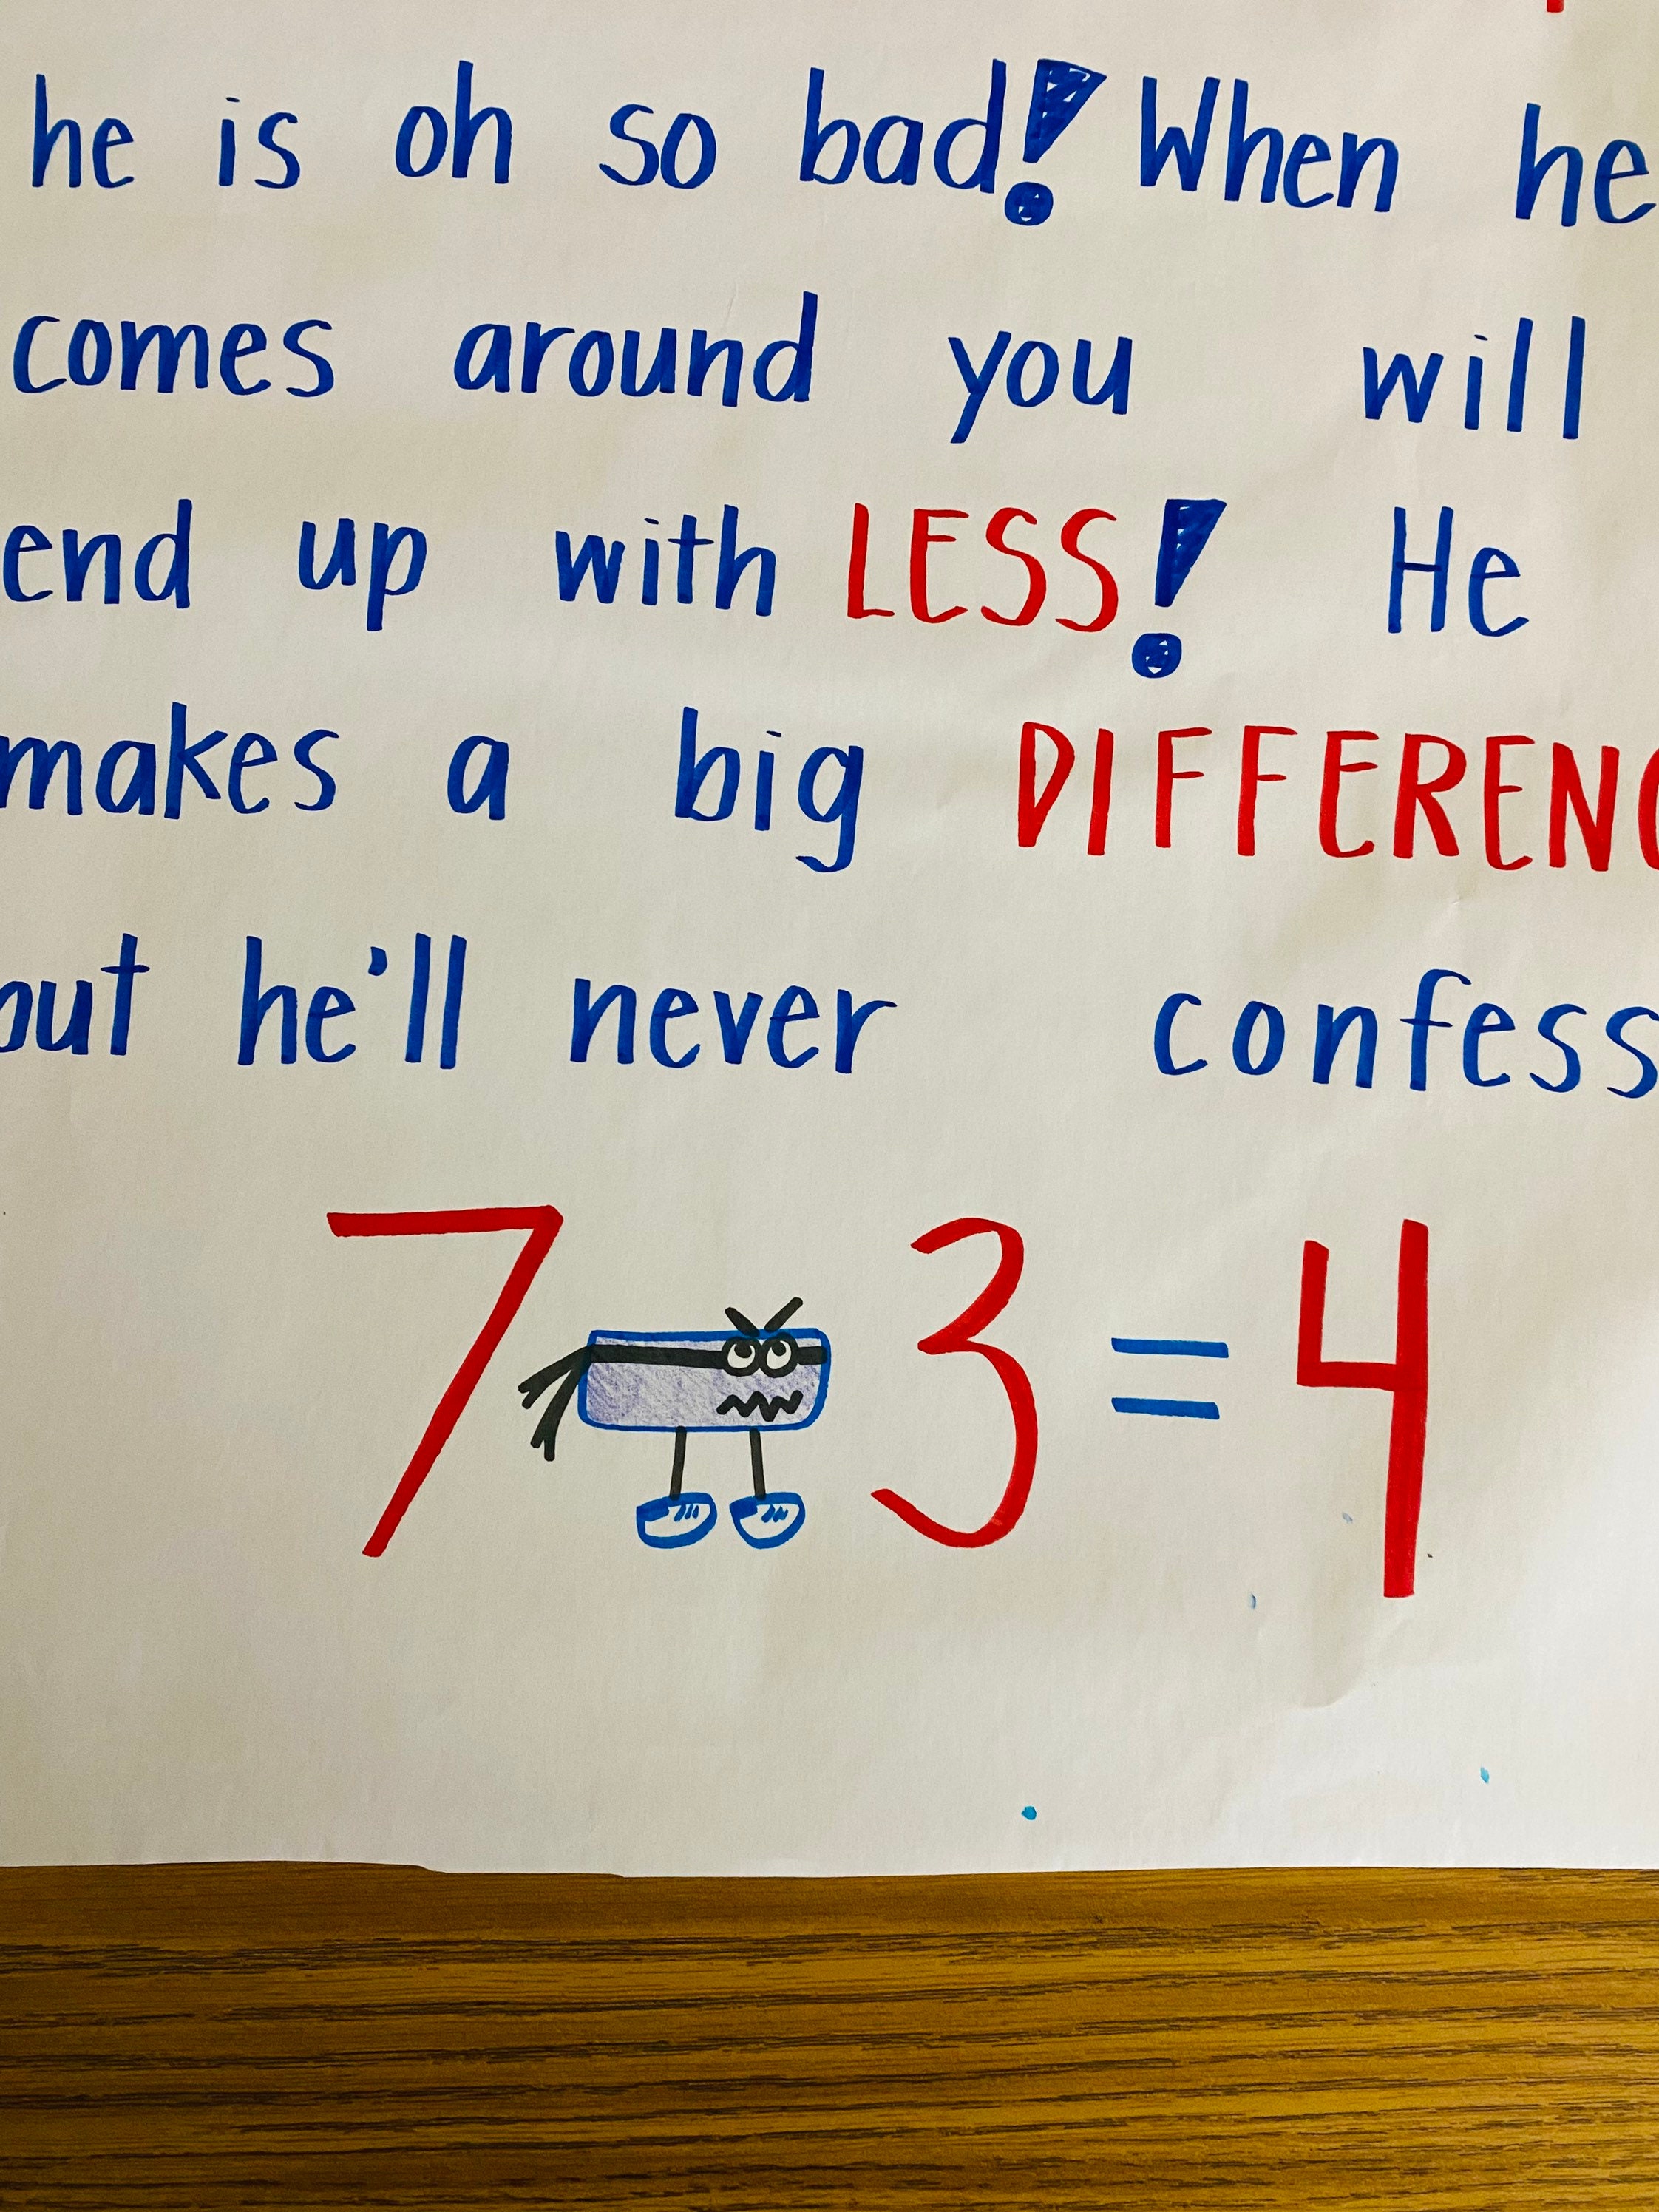 he is oh so bad! When he
comes around you will
end up with LESS! He
makes a big DIFFERENC
but he'll never confess
7 - 3 = 4